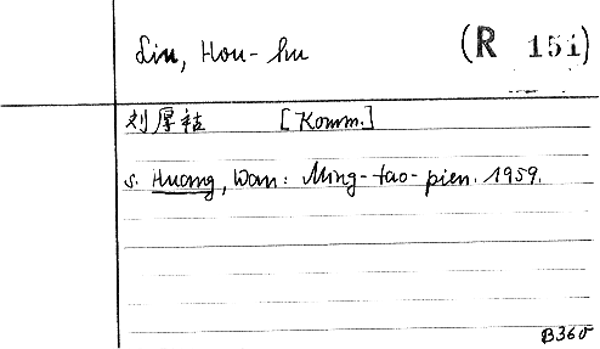 Liu, Hou-hu (R 151)
刘厚祜 [Komm.]
s. Huang, Wan: Ming-tao-pien. 1959.
B360